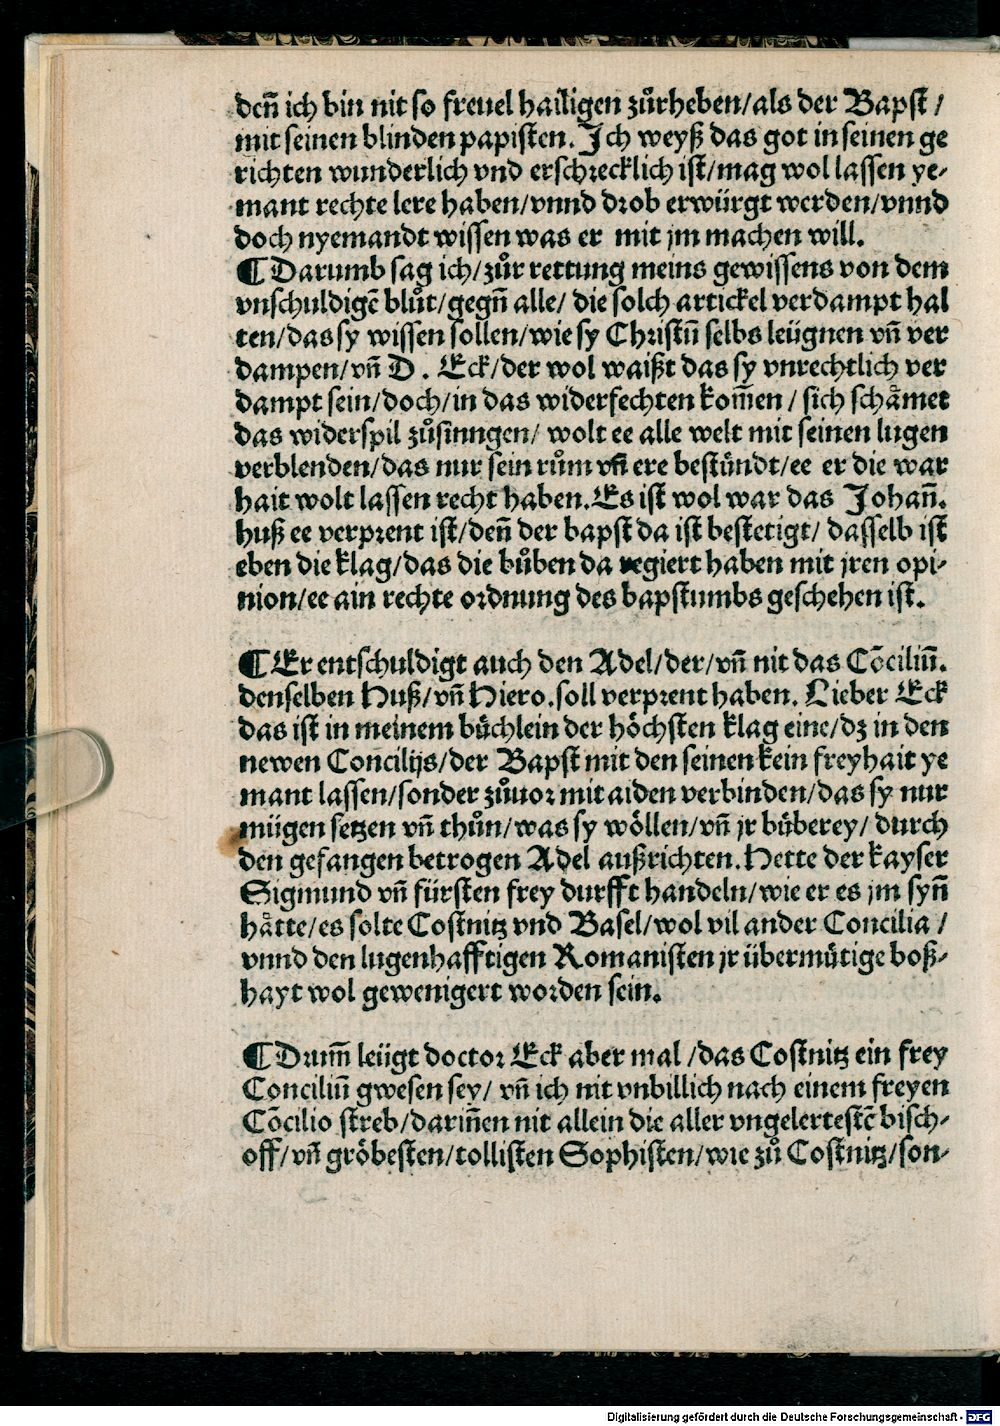 deñ ich bin nit so freuel hailigen zůrheben/als der Bapst /
mit seinen blinden papisten. Jch weyß das got in seinen ge
richten wunderlich vnd erschrecklich ist/mag wol lassen ye-
mant rechte lere haben/vnnd drob erwürgt werden/vnnd
doch nyemandt wissen was er mit jm machen will.
¶Darumb sag ich/zůr rettung meins gewissens von dem
vnschuldigē blůt/gegñ alle/ die solch artickel verdampt hal
ten/das sy wissen sollen/wie sy Christū selbs leügnen vñ ver
dampen/vñ D. Eck/der wol waißt das sy vnrechtlich ver
dampt sein/doch/in das widerfechten kom̄en / sich schåmet
das widerspil zůsinngen/ wolt ee alle welt mit seinen lugen
verblenden/das nur sein rům vñ ere bestündt/ee er die war
hait wolt lassen recht haben. Es ist wol war das Johañ.
huß ee verprent ist/deñ der bapst da ist bestetigt/ dasselb ist
eben die klag/das die bůben da regiert haben mit jren opi-
nion/ee ain rechte ordnung des bapstumbs geschehen ist.
¶Er entschuldigt auch den Adel/der/vñ nit das Cōciliū.
denselben Huß/vñ Hiero. soll verprent haben. Lieber Eck
das ist in meinem büchlein der höchsten klag eine/dz in den
newen Concilijs/der Bapst mit den seinen kein freyhait ye
mant lassen/sonder zůuor mit aiden verbinden/das sy nur
mügen setzen vñ thůn/was sy wöllen/vñ jr büberey/ durch
den gefangen betrogen Adel außrichten. Hette der kayser
Sigmund vñ fürsten frey durfft handeln/wie er es jm syñ
håtte/es solte Costnitz vnd Basel/wol vil ander Concilia /
vnnd den lugenhafftigen Romanisten jr übermütige boß-
hayt wol gewenigert worden sein.
¶Drum̄ leügt doctor Eck aber mal /das Costnitz ein frey
Conciliū gwesen sey/ vñ ich nit vnbillich nach einem freyen
Cōcilio streb/dariñen nit allein die aller vngelertestē bisch-
off/vñ gröbesten/tollisten Sophisten/wie zů Costnitz/son-
Digitalisierung gefördert durch die Deutsche Forschungsgemeinschaft - DFG